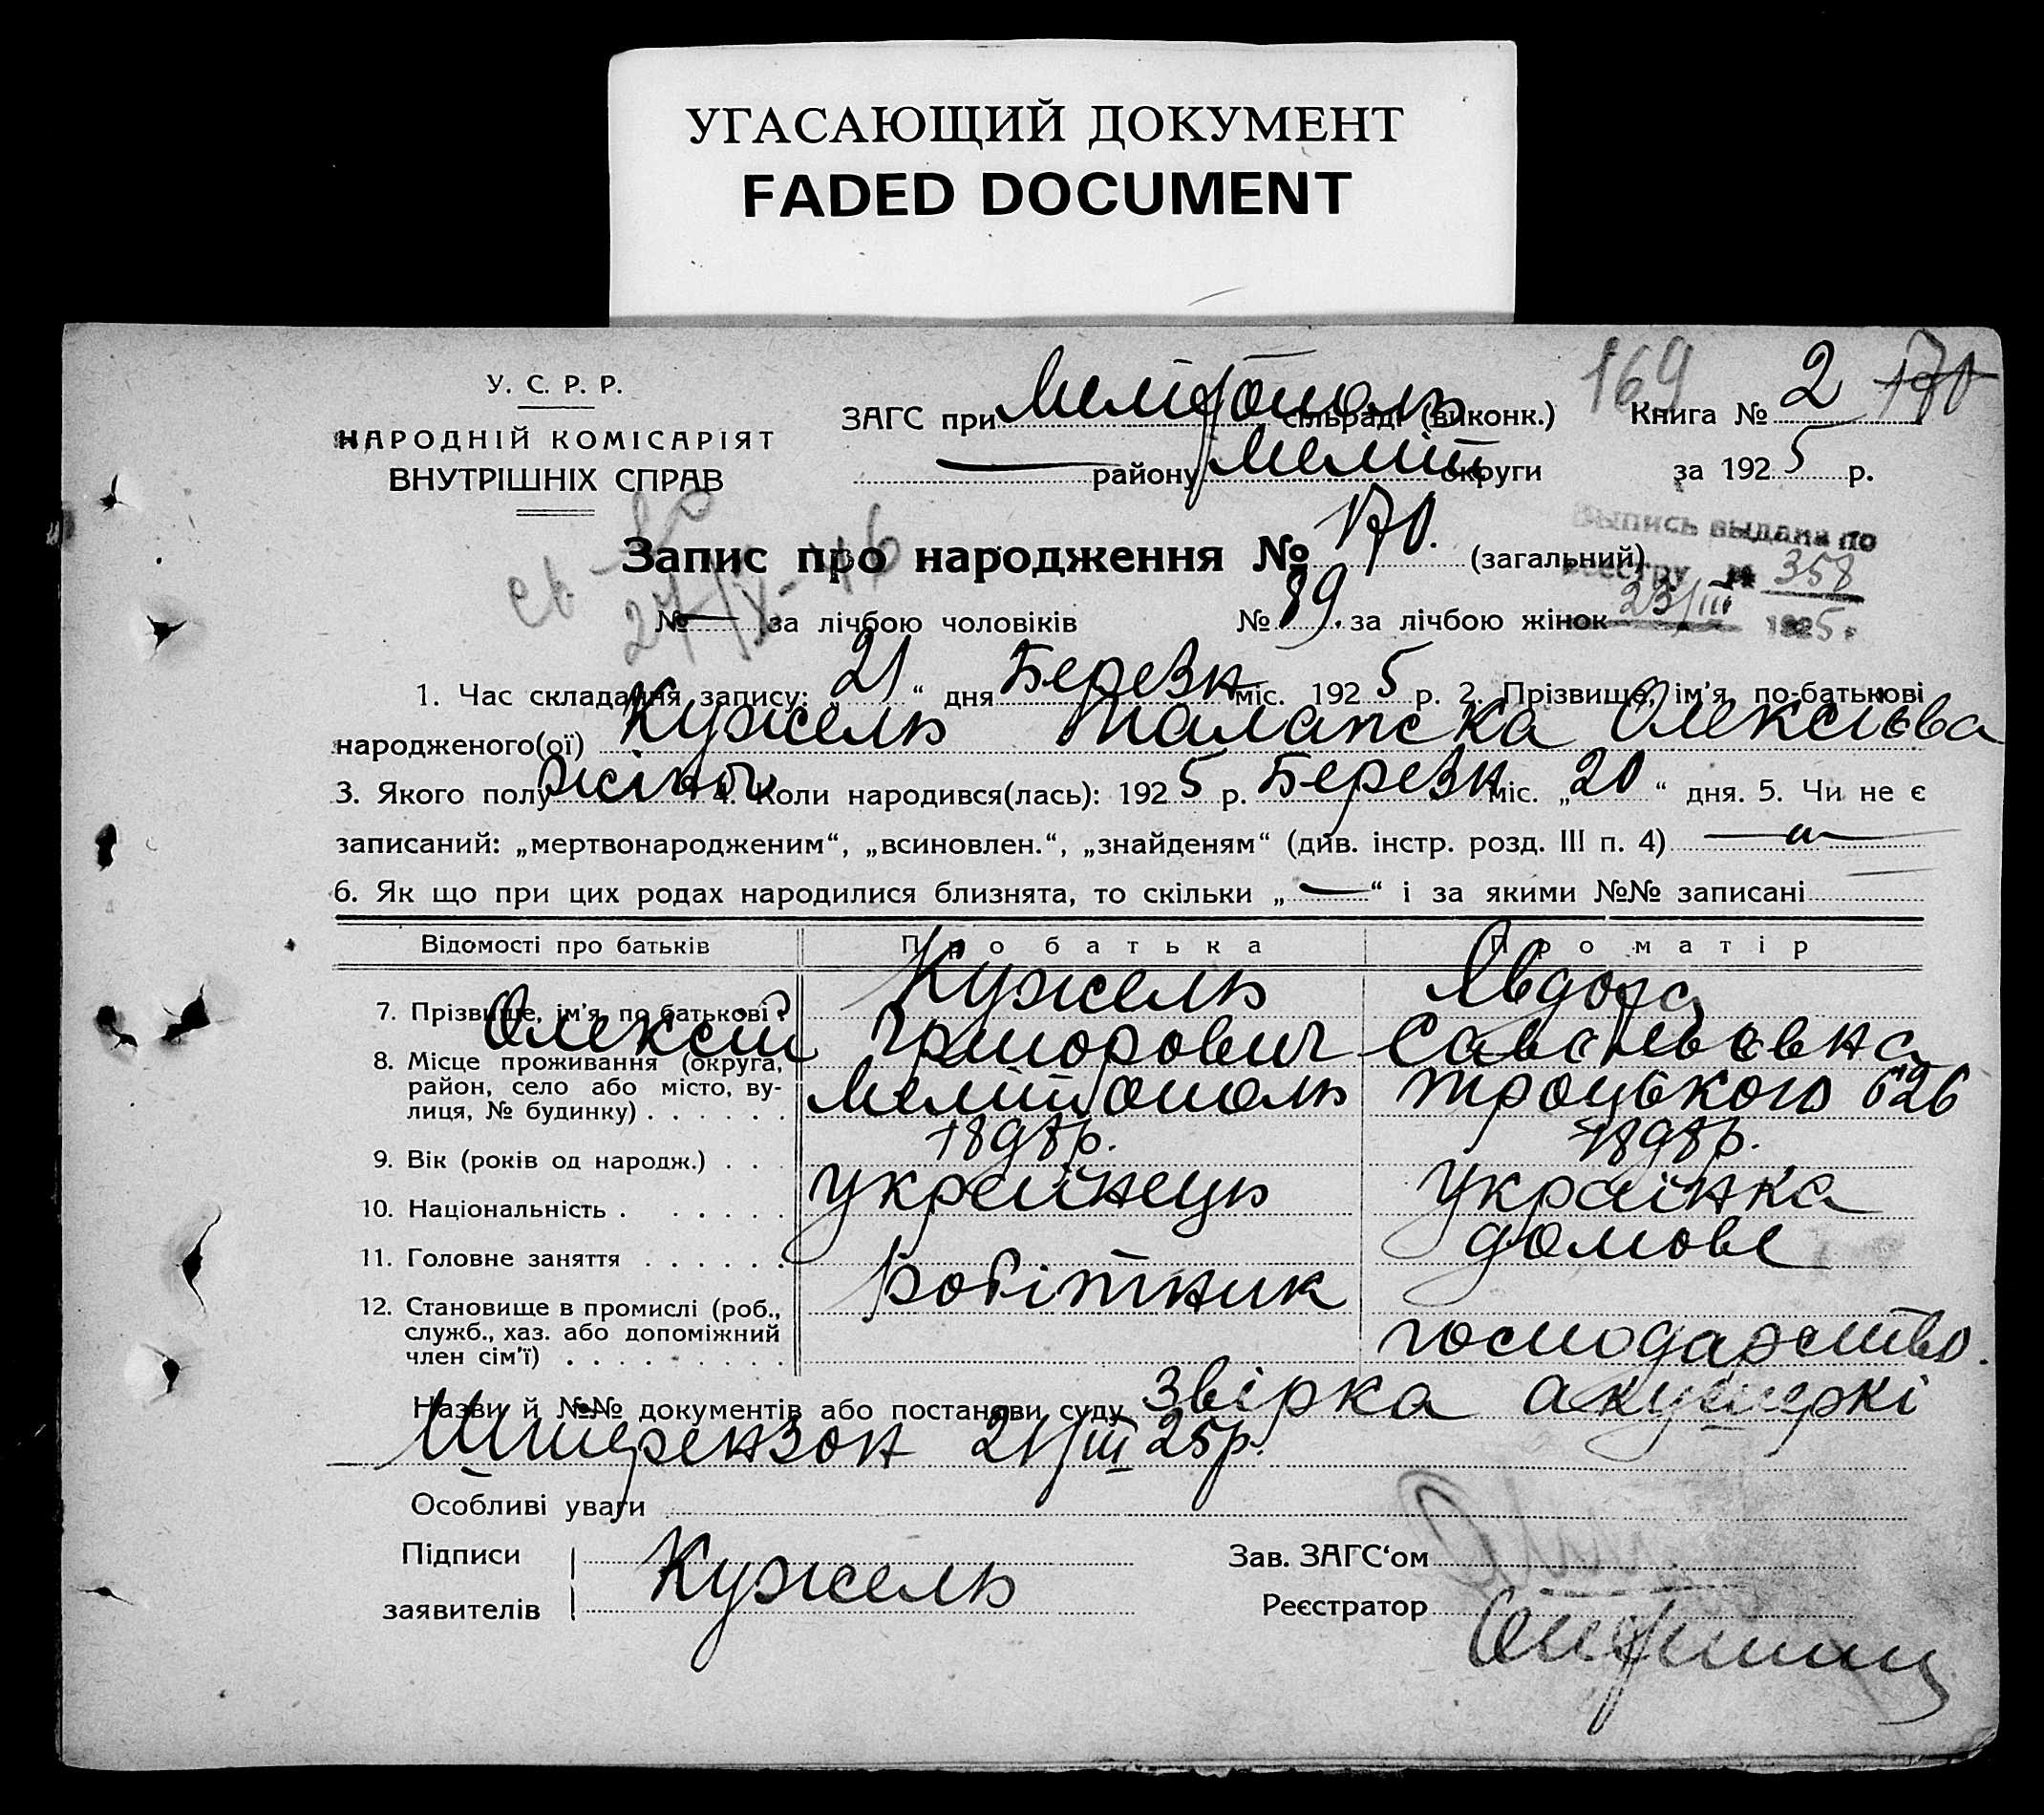 УГАСАЮЩИЙ ДОКУМЕНТ
FADED DOCUMENT
У. С. Р. Р.
НАРОДНІЙ КОМІСАРІЯТ
ВНУТРІШНІХ СПРАВ
ЗАГС при Мелітополь сільраді (виконк.)
169
Книга № 2 170
району Меліт округи
за 1925 р.
Запис про народження № 170. (загальний)
Выпись выдана по
реестру № 358
23/III 1925 г
27/IX-46
№ — за лічбою чоловіків № 89. за лічбою жінок
1. Час складання запису: „21“ дня Березн міс. 1925 р. 2. Прізвище, ім'я, по-батькові
народженого(ої) Кужель Олексієва
3. Якого полу жіноч 4. Коли народився(лась): 1925 р. Березн міс. „20“ дня. 5. Чи не є
записаний: „мертвонародженим“, „всиновлен.“, „знайденям“ (див. інстр. розд. III п. 4)
6. Як що при цих родах народилися близнята, то скільки „—“ і за якими №№ записані
Відомості про батьків
Про батька
Про матір
7. Прізвище, ім'я, по батькові
Кужель
Явдоха
Олексій Григорович
Савельєвна
8. Місце проживання (округа,
район, село або місто, ву-
лиця, № будинку)
Мелітополь
Троцького 626
9. Вік (років од народж.)
1898р.
1898р.
10. Національність
українець
Українка
11. Головне заняття
домове
12. Становище в промислі (роб.,
служб., хаз. або допоміжний
член сім'ї)
Робітник
господарство.
Назви й №№ документів або постанови суду звірка акушеркі
21/III 25р.
Особливі уваги
Підписи
заявителів
Кужель
Зав. ЗАГС'ом
Реєстратор